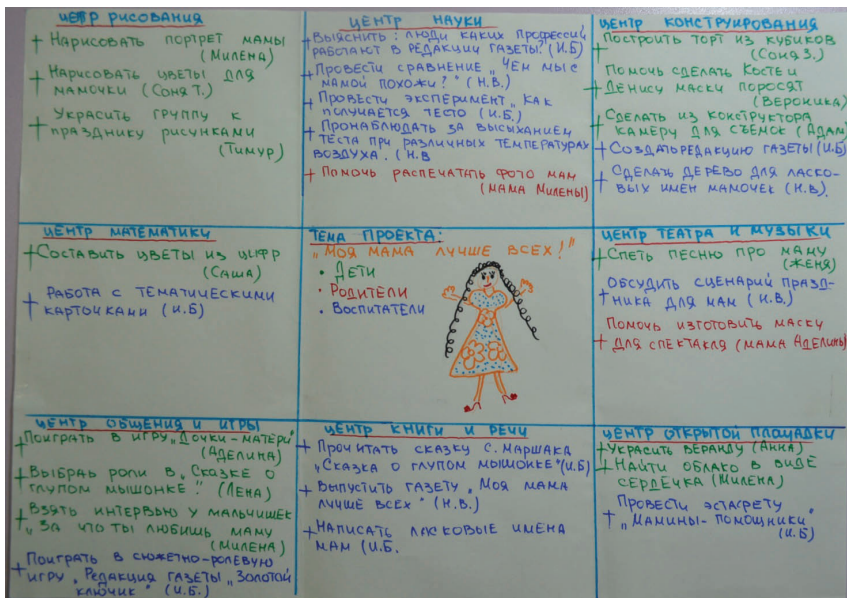 ЦЕНТР РИСОВАНИЯ
+ Нарисовать портрет мамы
(Милена)
+ Нарисовать цветы для
мамочки (Соня Т.)
+ Украсить группу к
празднику рисунками
(Тимур)
ЦЕНТР НАУКИ
+ Выяснить: люди каких профессий
работают в редакции газеты? (И.Б)
+ Провести сравнение „Чем мы с
мамой похожи?" (Н.В.)
+ Провести эксперимент „Как
получается тесто (И.Б.)
+ Пронаблюдать за высыханием
теста при различных температурах
воздуха. (Н.В
+ Помочь распечатать фото мам
(мама Милены)
ЦЕНТР КОНСТРУИРОВАНИЯ
+ Построить торт из кубиков
(Соня З.)
Помочь сделать Косте и
+ Денису маски поросят
(Вероника)
+ Сделать из конструктора
камеру для съёмок (Адам)
+ Создать редакцию газеты (И.Б)
+ Сделать дерево для ласко-
вых имен мамочек (Н.В).
ЦЕНТР МАТЕМАТИКИ
+ Составить цветы из цифр
(Саша)
+ Работа с тематическими
карточками (И.Б)
ТЕМА ПРОЕКТА:
„Моя мама лучше всех!"
• Дети
• Родители
• Воспитатели
ЦЕНТР ТЕАТРА И МУЗЫКИ
+ Спеть песню про маму
(Женя)
+ Обсудить сценарий празд-
ника для мам (Н.В.)
Помочь изготовить маску
+ для спектакля (мама Аделины)
ЦЕНТР ОБЩЕНИЯ И ИГРЫ
+ Поиграть в игру „Дочки-матери"
(Аделина)
+ Выбрать роли в „Сказке о
глупом мышонке". (Лена)
+ Взять интервью у мальчишек
„За что ты любишь маму
(Милена)
+ Поиграть в сюжетно-ролевую
игру „Редакция газеты „Золотой
ключик" (И.Б.)
ЦЕНТР КНИГИ И РЕЧИ
+ Прочитать сказку С. Маршака
„Сказка о глупом мышонке" (И.Б)
+ Выпустить газету „Моя мама
лучше всех" (Н.В.)
+ Написать ласковые имена
мам (И.Б.
ЦЕНТР ОТКРЫТОЙ ПЛОЩАДКИ
+ Украсить веранду (Анна)
+ Найти облако в виде
сердечка (Милена)
+ Провести эстафету
„Мамины-помощники"
(И.Б)